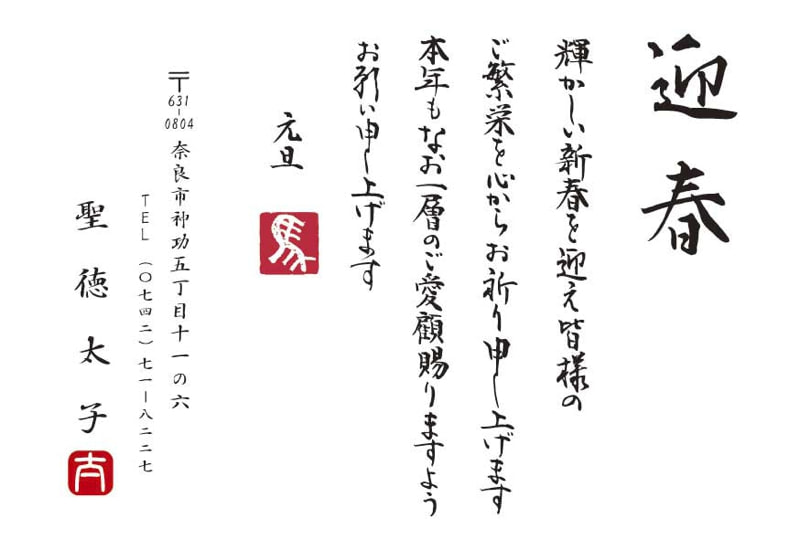 迎春
輝かしい新春を迎え皆様の
ご繁栄を心からお祈り申し上げます
本年もなお一層のご愛顧賜りますよう
お願い申し上げます
元旦
馬
〒631-0804 奈良市神功五丁目十一の六
TEL (〇七四二)七一―八二二七
聖徳太子